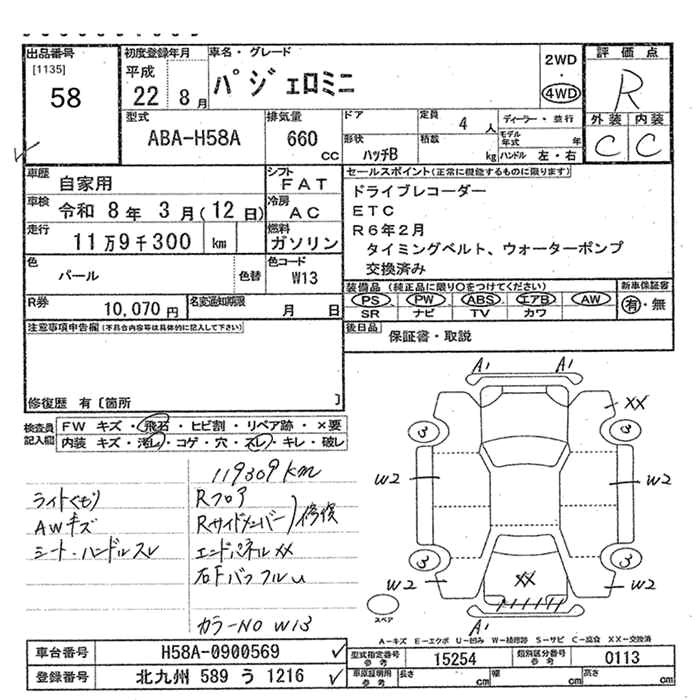 出品番号
[1135]
58
初度登録年月
平成
22 8月
車名・グレード
パジェロミニ
2WD
・
4WD
評価点
R
外装 内装
C C
型式
ABA-H58A
排気量
660
CC
ドア
形状
ハッチB
定員
4人
積載
kg
ディーラー・並行
モデル年式 年
ハンドル 左・右
車歴
自家用
シフト
FAT
車検
令和 8年 3月(12日)
冷房
AC
走行
11万9千300 km
燃料
ガソリン
色
パール
色替
色コード
W13
R券
10,070円
名変通知期限
月 日
セールスポイント(正常に機能するものに限ります)
ドライブレコーダー
ETC
R6年2月
タイミングベルト、ウォーターポンプ
交換済み
装備品(純正品に限り○をつけてください)
PS PW ABS エアB AW
SR ナビ TV カワ
新車保証書
有・無
後日品
保証書・取説
注意事項申告欄(不具合内容等は具体的に記入して下さい)
修復歴 有〔箇所 〕
検査員記入欄
FW キズ・飛石・ヒビ割・リペア跡・×要
内装 キズ・汚れ・コゲ・穴・スレ・キレ・破レ
119309km
ライトくもり
AWキズ
シート・ハンドルスレ
Rフロア
Rサイドメンバー
修復
エンドパネルXX
右Fバッフル U
カラーNO W13
A1 A1
XX
3 3
W2 W2
3 3
W2 W2
XX
A1
スペア
A-キズ E-エクボ U-凹み W-補修跡 S-サビ C-腐食 XX-交換済
車台番号
H58A-0900569
登録番号
北九州 589 う 1216
型式指定番号
参考
15254
類別区分番号
参考
0113
車庫証明用
参考
長さ cm
幅 cm
高さ cm